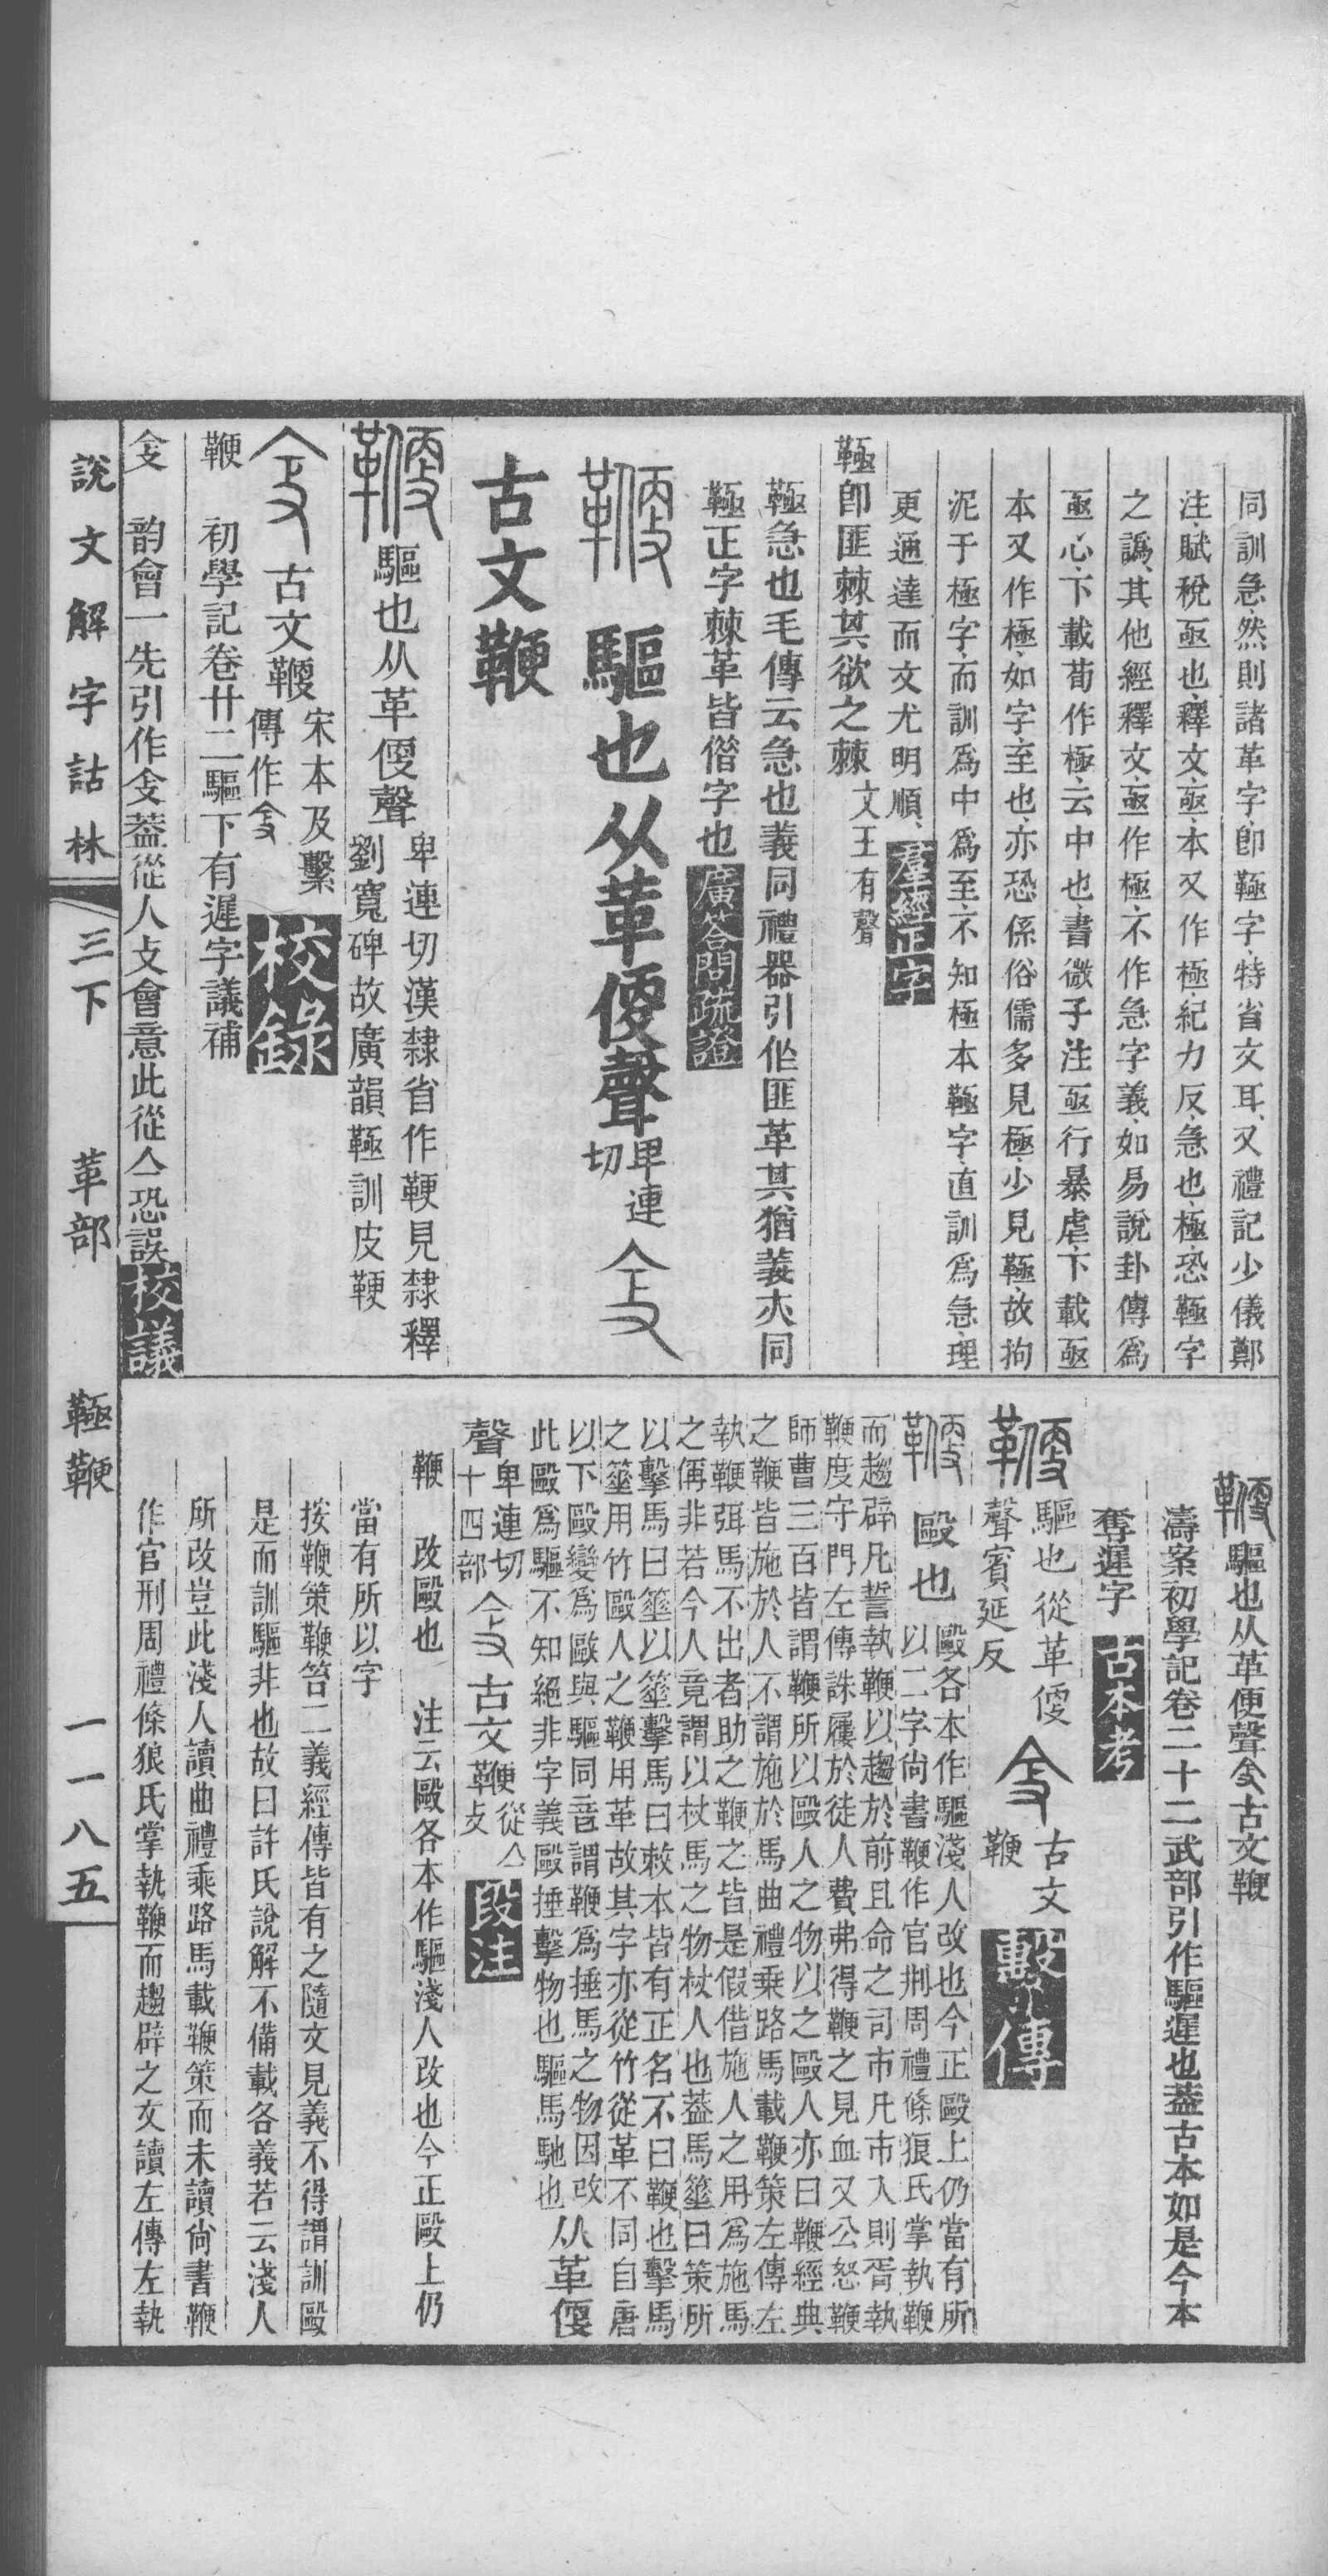 同訓急、然則諸革字、卽䩯字、特省文耳、又禮記少儀鄭
注、賦稅亟也、釋文、亟、本又作極、紀力反、急也、極、恐䩯字
之譌、其他經釋文、亟作極、不作急字義、如易說卦傳爲
亟心、下載荀作極、云中也、書微子注亟行暴虐、下載亟
本又作極、如字、至也、亦恐係俗儒多見極、少見䩯、故拘
泥于極字、而訓爲中爲至、不知極本䩯字、直訓爲急、理
更通達而文尤明順、羣經正字
䩯卽匪棘其欲之棘文王有聲
䩯急也毛傳云急也義同禮器引作匪革其猶義亦同
䩯正字棘革皆借字也廣答問疏證
鞭 驅也从革㪅聲卑連切 㒰
古文鞭
鞭驅也从革㪅聲卑連切漢隸省作鞭見隸釋
劉寬碑故廣韻䩯訓皮鞭
㒰古文鞭宋本及繫
傳作㒰校錄
鞭 初學記卷廿二驅下有遲字議補
㒰 韵會一先引作㒰葢從人攴會意此從亼恐誤校議
鞭驅也从革便聲㒰古文鞭
濤案初學記卷二十二武部引作驅遲也葢古本如是今本
奪遲字古本考
鞭驅也從革㪅
聲賓延反㒰古文
鞭繫傳
鞭 毆也毆各本作驅淺人改也今正毆上仍當有所
以二字尙書鞭作官刑周禮條狼氏掌執鞭
而趨辟凡誓執鞭以趨於前且命之司市凡市入則胥執
鞭度守門左傳誅屨於徒人費弗得鞭之見血又公怒鞭
師曹三百皆謂鞭所以毆人之物以之毆人亦曰鞭經典
之鞭皆施於人不謂施於馬曲禮乘路馬載鞭策左傳左
執鞭弭馬不出者助之鞭之皆是假借施人之用爲施馬
之偁非若今人竟謂以杖馬之物杖人也葢馬箠曰策所
以擊馬曰箠以箠擊馬曰敕本皆有正名不曰鞭也擊馬
之箠用竹毆人之鞭用革故其字亦從竹從革不同自唐
以下毆變爲敺與驅同音謂鞭爲捶馬之物因改
此毆爲驅不知絕非字義毆捶擊物也驅馬馳也从革㪅
聲卑連切
十四部㒰古文鞭從亼
攴段注
鞭 改毆也 注云毆各本作驅淺人改也今正毆上仍
當有所以字
按鞭策鞭笞二義經傳皆有之隨文見義不得謂訓毆
是而訓驅非也故曰許氏說解不備載各義若云淺人
所改豈此淺人讀曲禮乘路馬載鞭策而未讀尙書鞭
作官刑周禮條狼氏掌執鞭而趨辟之文讀左傳左執
說文解字詁林 三下 革部 䩯鞭 一一八五